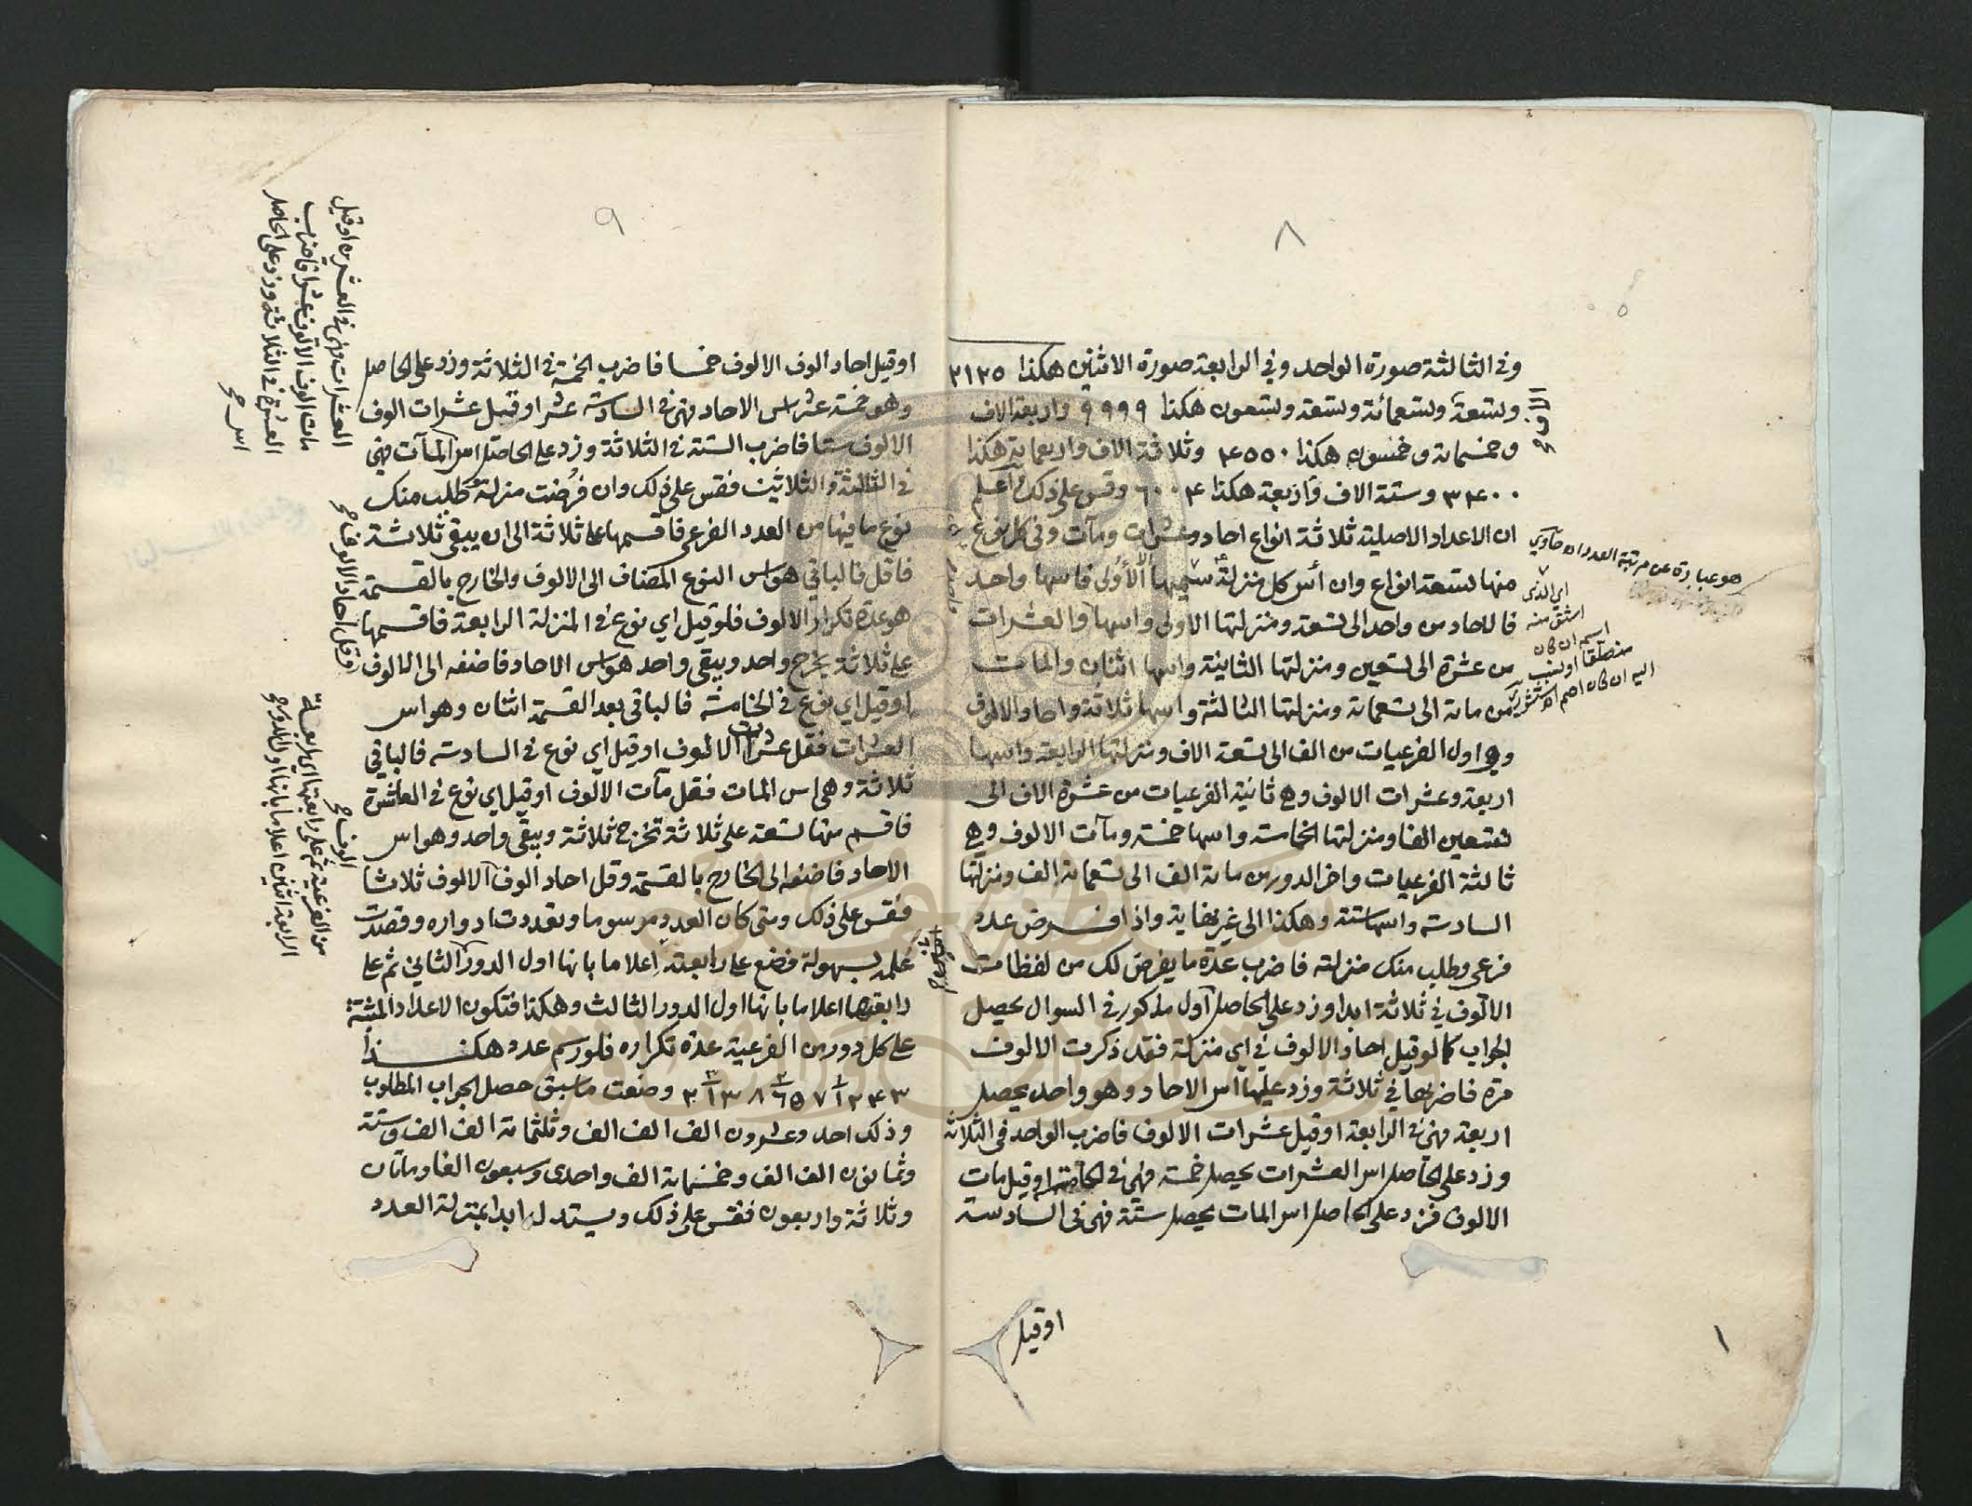 ٨
وفي الثالثة صورة الواحد وفي الرابعة صورة الاثنين هكذا ٢١٢٥
وتسعة وتسعمائة وتسعة وتسعون هكذا ٩٩٩٩ واربعة الاف
وخمسماية وخمسون هكذا ٤٥٥٠ وثلاثة الاف واربعماية هكذا
٣٤٠٠ وستة الاف واربعة هكذا ٦٠٠٤ وقس على ذلك واعلم
ان الاعداد الاصلية ثلاثة انواع احاد وعشرات ومآت وفي كل نوع
منها تسعة انواع وان أس كل منزلة سميها الا الأولى فاسها واحد
فالاحاد من واحد الى تسعة ومنزلتها الاولى واسها والعشرات
من عشرة الى تسعين ومنزلتها الثانية واسها اثنان والمات
من ماية الى تسعماية ومنزلتها الثالثة واسها ثلاثة واحاد الالوف
وهي اول الفرعيات من الف الى تسعة الاف ومنزلتها الرابعة واسها
اربعة وعشرات الالوف وهي ثانية الفرعيات من عشرة الاف الى
تسعين الفا ومنزلتها الخامسة واسها خمسة ومآت الالوف وهي
ثالثة الفرعيات واخر الدور من ماية الف الى تسعماية الف ومنزلتها
السادسة واسها ستة وهكذا الى غير نهاية واذا فرض عدد
فرعي وطلب منك منزلته فاضرب عدة ما يفرض لك من لفظات
الالوف في ثلاثة ابدا وزد على الحاصل أول مذكور في السوال يحصل
الجواب كما لو قيل احاد الالوف في اي منزلة فقد ذكرت الالوف
مرة فاضربها في ثلاثة وزد عليها اس الاحاد وهو واحد يحصل
اربعة فهي في الرابعة اوقيل عشرات الالوف فاضرب الواحد في الثلاثة
وزد على الحاصل اس العشرات يحصل خمسة فهي في الخامسة اوقيل مات
الالوف فزد على الحاصل اس المات يحصل ستة فهي في السادسة
اوقيل
هو عبارة عن مرتبة العدد
اي الذي
اشتق منه
اسمه ان كان
اليه ان كان اصم
١
٩
اوقيل احاد الوف الالوف خمسا فاضرب الخمسة في الثلاثة وزد على الحاصل
وهو خمسة عشر اس الاحاد فهي في السادسة عشر اوقيل عشرات الوف
الالوف ستا فاضرب الستة في الثلاثة وزد على الحاصل اس المآت فهي
في الثالثة والثلاثين فقس على ذلك وان فرضت منزلة وطلب منك
نوع ما فيها من العدد الفرعي فاقسمها على ثلاثة الى ان يبقى ثلاثة
فاقل فالباقي هو اس النوع المضاف الى الالوف والخارج بالقسمة
هو عدة تكرار الالوف فلو قيل اي نوع في المنزلة الرابعة فاقسمها
على ثلاثة يخرج واحد ويبقى واحد هو اس الاحاد فاضفه الى الالوف
اوقيل اي نوع في الخامسة فالباقي بعد القسمة اثنان وهو اس
العشرات فقل عشرات الالوف اوقيل اي نوع في السادسة فالباقي
ثلاثة وهي اس المات فقل مآت الالوف اوقيل اي نوع في العاشرة
فاقسم منها تسعة على ثلاثة تخرج ثلاثة ويبقى واحد وهو اس
الاحاد فاضفه الى الخارج بالقسمة وقل احاد الوف الالوف ثلاثا
فقس على ذلك ومتى كان العدد مرسوما وتعددت ادواره وقصدت
علمه بسهولة فضع على رابعته اعلاما بانها اول الدور الثاني ثم على
رابعتها اعلاما بانها اول الدور الثالث وهكذا فتكون الاعداد المثبتة
على كل دور من الفرعية عدة تكراره فلو رسم عدد هكذا
٢١٣٨٦٥٧١٢٤٣ وضعت ما سبق حصل الجواب المطلوب
٣ ٢ ١
وذلك احد وعشرون الف الف الف وثلثماية الف الف وستة
وثمانون الف الف وخمسماية الف واحدى وسبعون الفا ومايتان
وثلاثة واربعون فقس على ذلك ويستدل ابدا بمنزلة العدد
العشرات فهي في العشرين اوقيل
مات الوف الالوف عشرا فاضرب
العشرة في الثلاثة وزد على الحاصل
اس صح
اوقل احاد الالوف صح
الوف صح
من الفرعية ثم على رابعتها اي رابعة
الرابعة اثنين اعلاما بانها اول